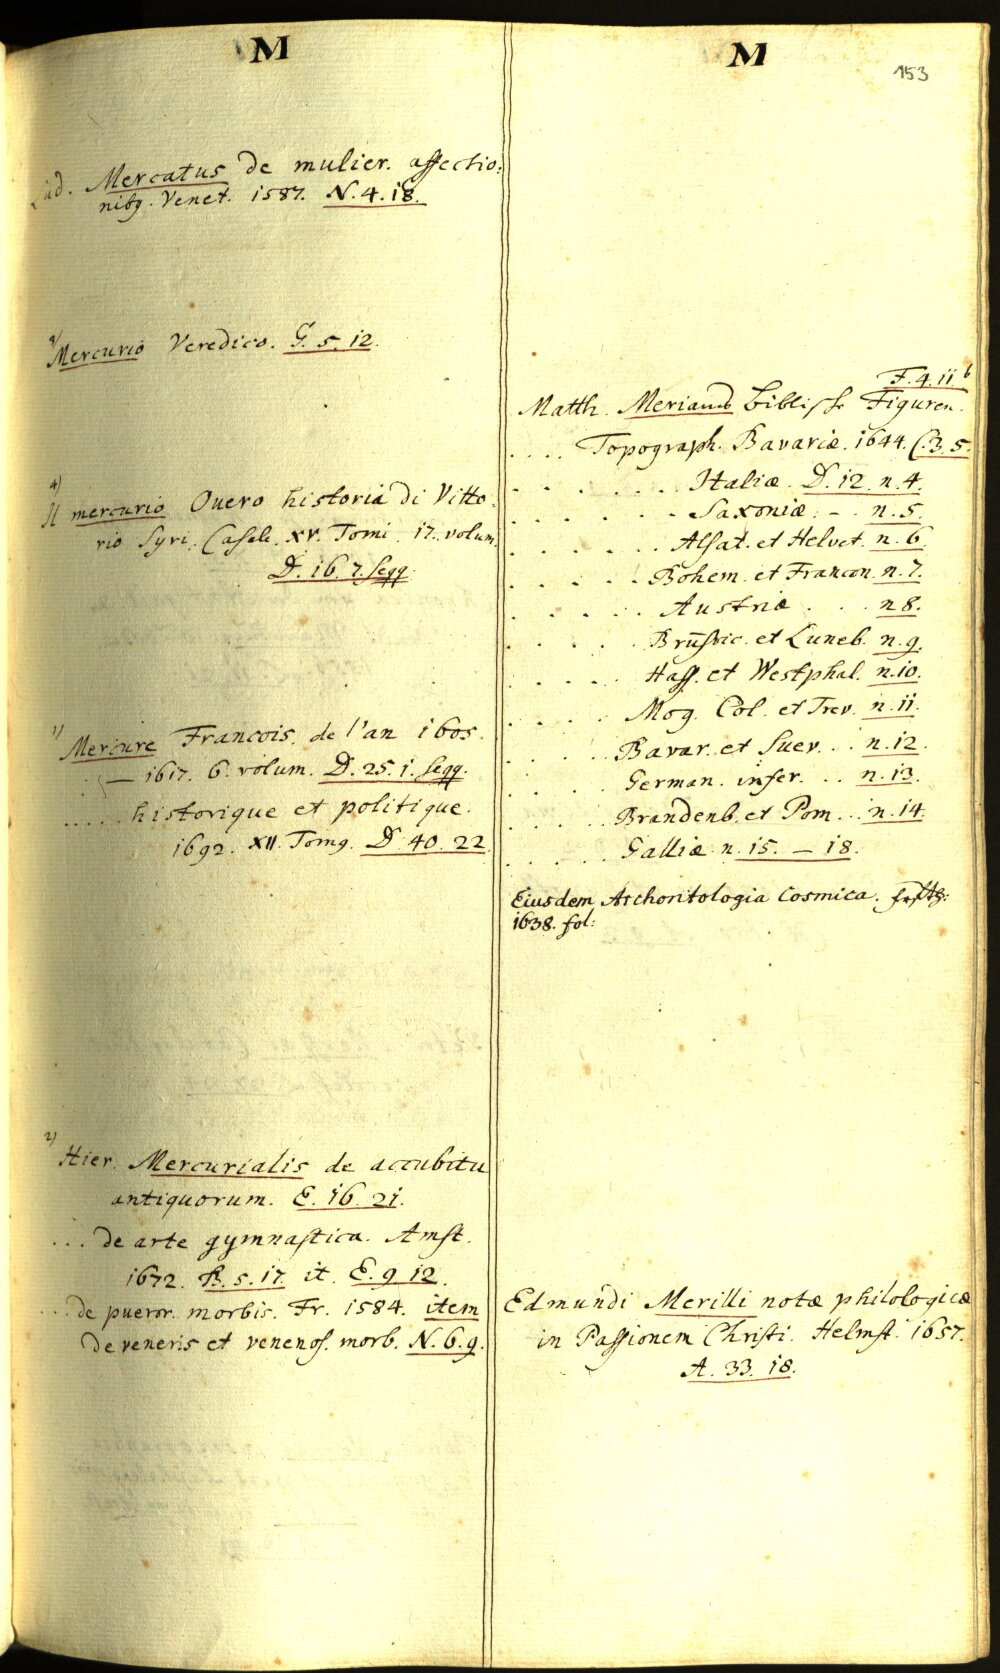 M
Lud. Mercatus de mulier. affectio:
nibg. Venet. 1587. N. 4. 18.
3) Mercurio Veredico. G. 5. 12.
4)
Il mercurio Ouero historia di Vitto:
rio Syri. Casele. XV. Tomi. 17. volum.
D. 16. 7. seqq.
1) Mercure Francois. de l'an 1605.
— 1617. 6. volum. D. 25. 1. seqq.
..... historique et politique.
1692. XII. Tomg. D. 40. 22
2)
Hier. Mercurialis de accubitu
antiquorum. E. 16. 21.
... de arte gymnastica. Amst.
1672. R. 5. 17. it. E. 9. 12.
... de pueror. morbis. Fr. 1584. item
de veneris et venenos. morb. N. 6. 9.
M
153
F. 4. 11 b
Matth. Merians Biblische Figuren.
.... Topograph. Bavariæ. 1644. C. 3. 5.
. . . . . . Italiæ. D. 12. n. 4.
. . . . . . Saxoniæ. - . n. 5.
. . . . . . Alsat. et Helvet. n. 6.
. . . . . Bohem. et Francon. n. 7.
. . . . . Austriæ . . . n 8.
. . . . . Brūsvic. et Luneb. n. 9.
. . . . Hass. et Westphal. n. 10.
. . . . Mog. Col. et Trev. n. 11.
. . . . Bavar. et Suev. . . n. 12.
. . . . German. infer. . . n. 13.
. . . . Brandenb. et Pom. . . n. 14.
. . . . Galliæ. n. 15. — 18.
Eiusdem Archontologia Cosmica.
1638. fol:
Edmundi Merilli notæ philologicæ
in Passionem Christi. Helmst. 1657.
A. 33. 18.